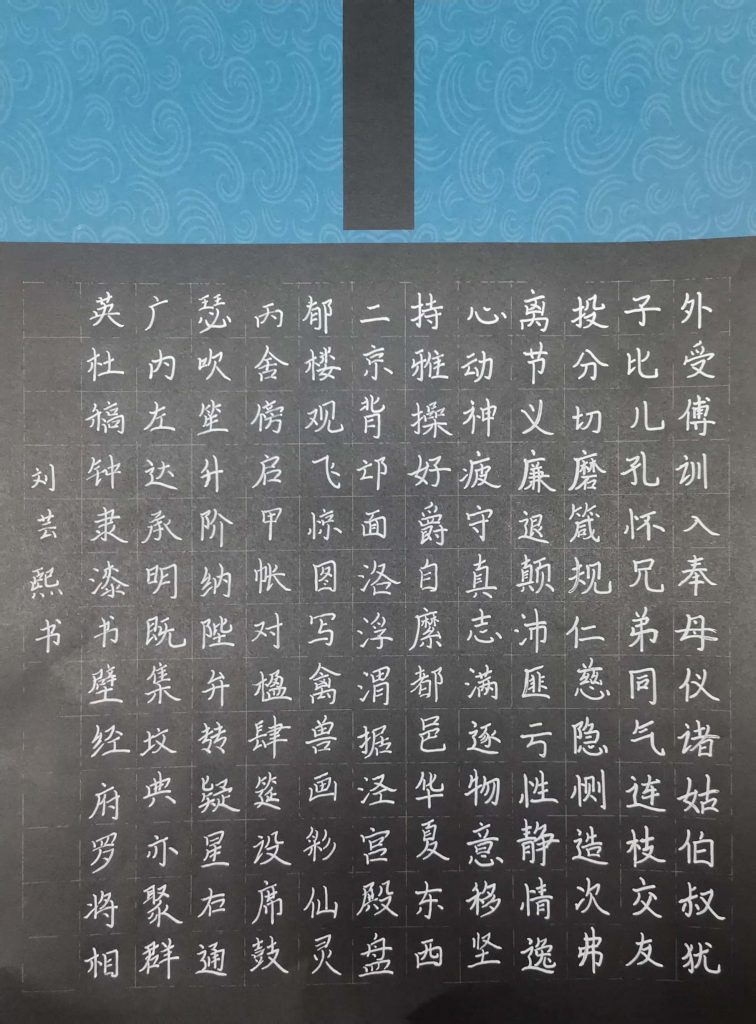 外受傅训入奉母仪诸姑伯叔犹
子比儿孔怀兄弟同气连枝交友
投分切磨箴规仁慈隐恻造次弗
离节义廉退颠沛匪亏性静情逸
心动神疲守真志满逐物意移坚
持雅操好爵自縻都邑华夏东西
二京背邙面洛浮渭据泾宫殿盘
郁楼观飞惊图写禽兽画彩仙灵
丙舍傍启甲帐对楹肆筵设席鼓
瑟吹笙升阶纳陛弁转疑星右通
广内左达承明既集坟典亦聚群
英杜稿钟隶漆书壁经府罗将相
刘芸熙书